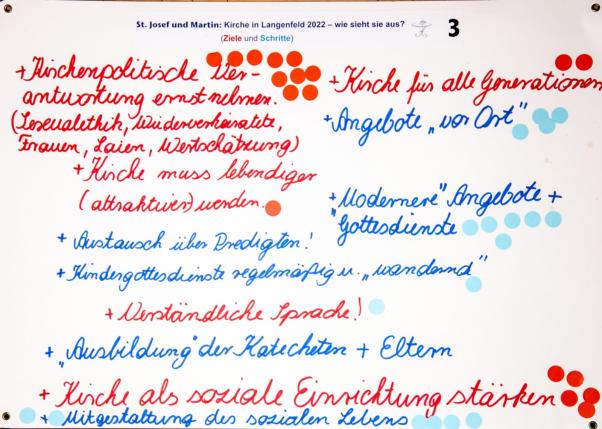 St. Josef und Martin: Kirche in Langenfeld 2022 – wie sieht sie aus?
(Ziele und Schritte)
3
+ Kirchenpolitische Ver-
antwortung ernst nehmen.
(Sexualethik, Wiederverheiratete,
Frauen, Laien, Wertschätzung)
+ Kirche für alle Generationen
+ Angebote „vor Ort"
+ Kirche muss lebendiger
(attraktiver) werden.
+ "Modernere" Angebote +
Gottesdienste
+ Austausch über Predigten!
+ Kindergottesdienste regelmäßig u. „wandernd"
+ Verständliche Sprache!
+ „Ausbildung" der Katecheten + Eltern
+ Kirche als soziale Einrichtung stärken
+ Mitgestaltung des sozialen Lebens